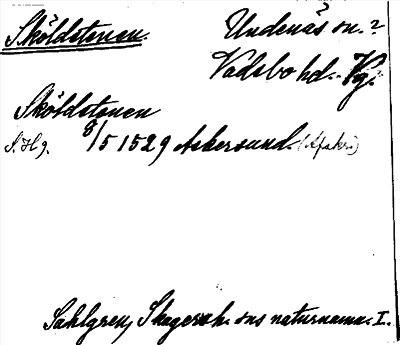 Sköldstenen.
Undenäs sn.?
Vadsbo hd. Vg.
Sköldstenen
8/5 1529 Askersund. (Afskr.)
Sahlgren, Skagersh. sns naturnamn. I.